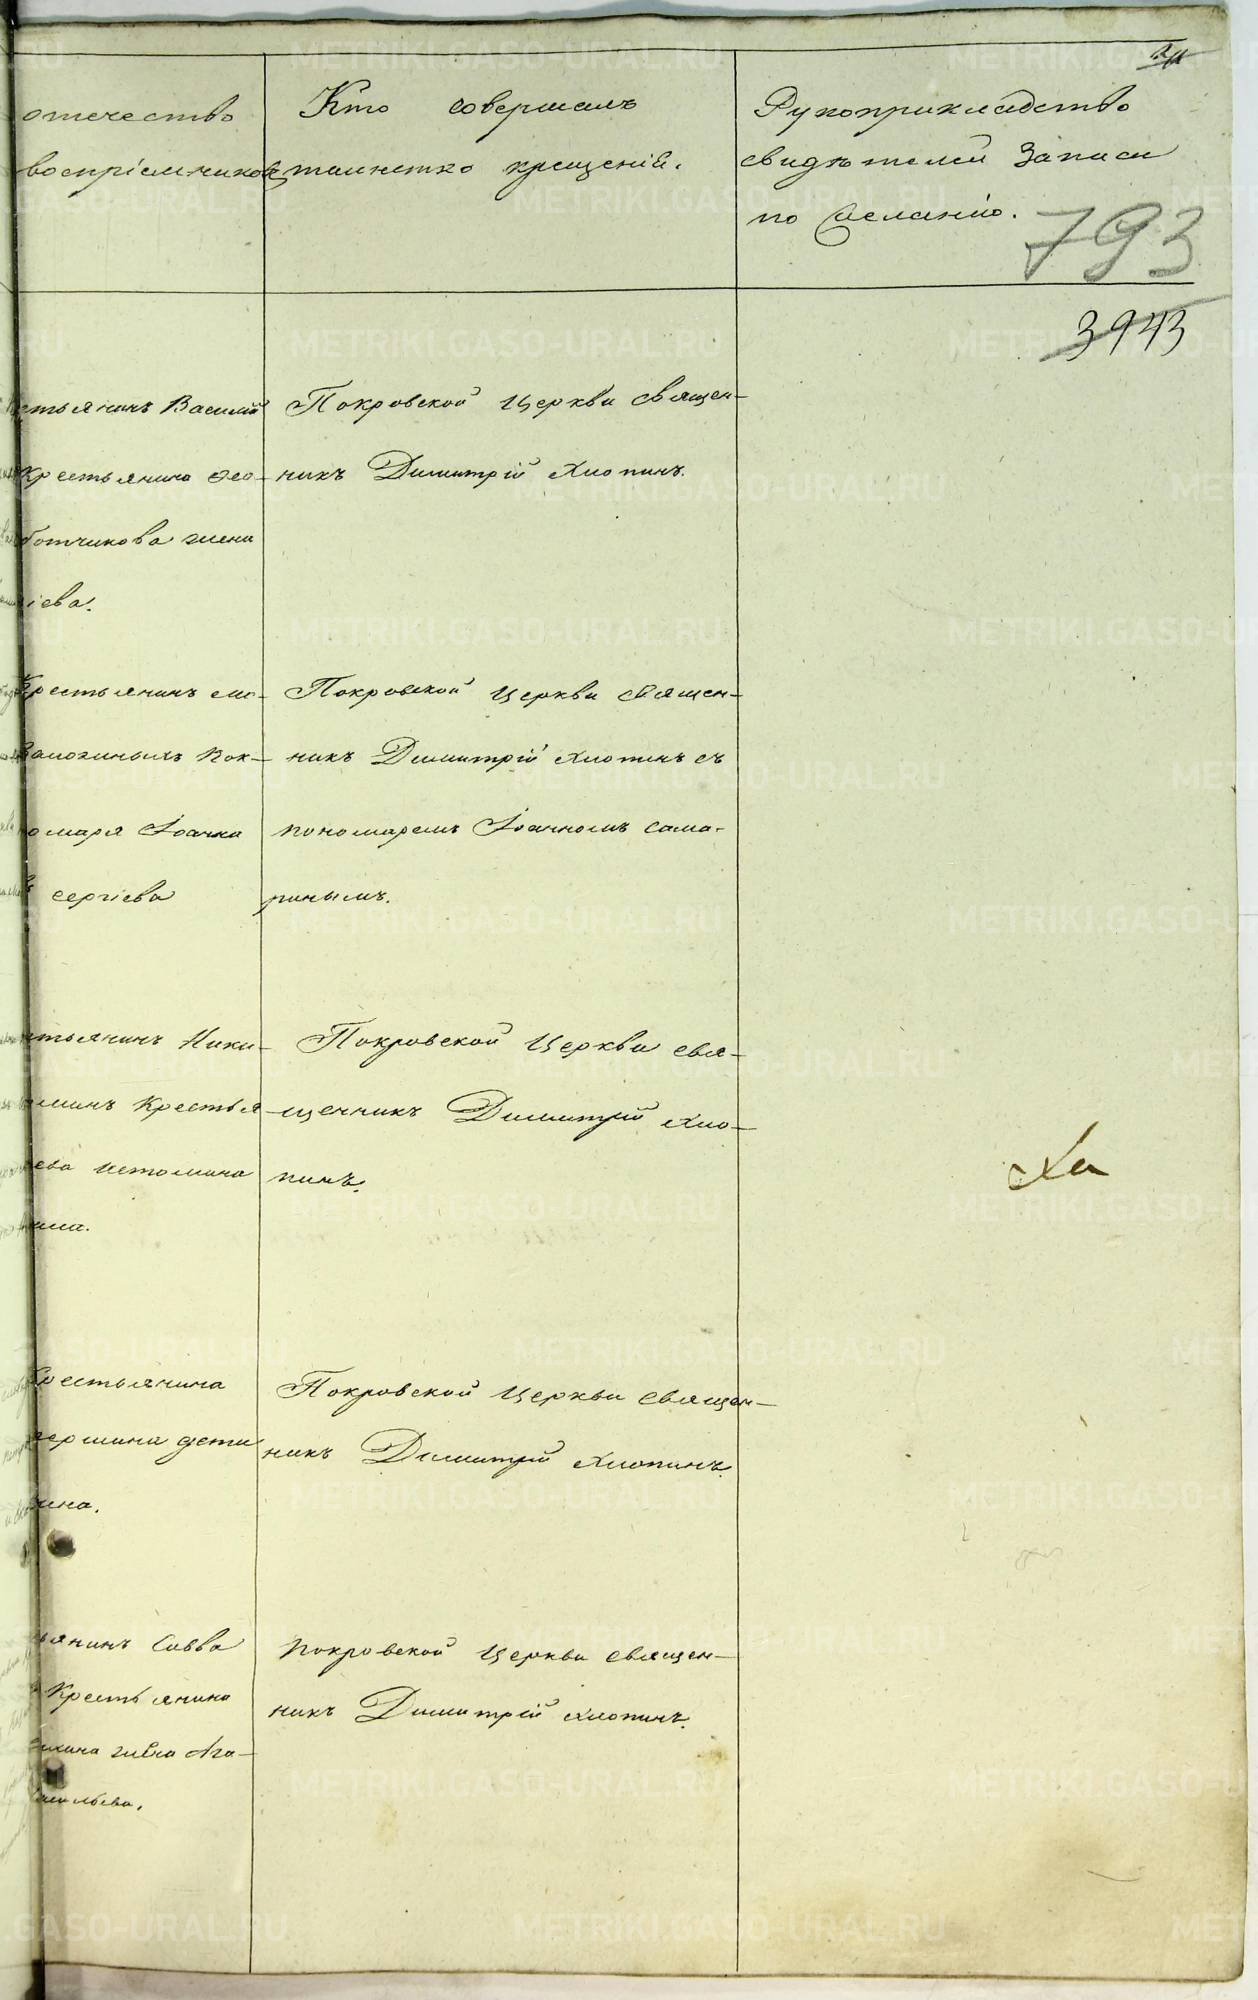 отечество
воспріемниковъ
Кто совершалъ
таинство крещенія.
Рукоприкладство
свидѣтелей записи
по желанію.
793
3943
стьянинъ Василій
Крестьянина Ѳео-
ботчикова жена
іева.
Покровской Церкви священ-
никъ Димитрій Хлопинъ.
Крестьянинъ
Пок-
номаря Іоанна
Сергіева
Покровской Церкви священ-
никъ Димитрій Хлопинъ съ
пономаремъ Іоанномъ Сама-
ринымъ.
стьянинъ Ники-
минъ Крестья-
ева Истомина
Покровской Церкви свя-
щенникъ Димитрій Хло-
пинъ.
Ха
Крестьянина
дети
ина.
Покровской Церкви священ-
никъ Димитрій Хлопинъ.
ьянинъ Савва
Крестьянина
жена Ага-
сильева.
Покровской Церкви священ-
никъ Димитрій Хлопинъ.
METRIKI.GASO-URAL.RU